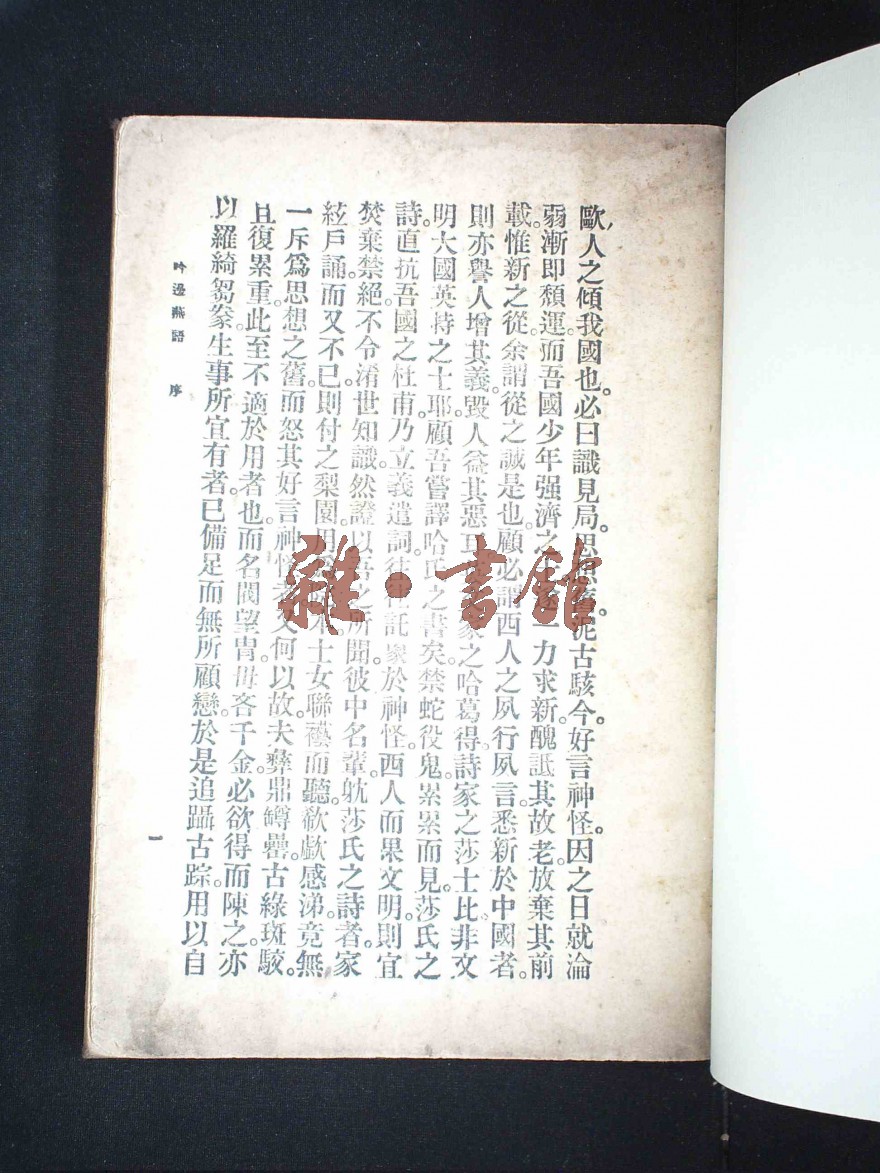 歐人之傾我國也。必曰識見局。思想舊。泥古駭今。好言神怪。因之日就淪
弱。漸即頹運。而吾國少年强濟之士。遂一力求新。醜詆其故老。放棄其前
載。惟新之從。余謂從之誠是也。顧必謂西人之夙行夙言。悉新於中國者。
則亦譽人增其義。毀人益其惡耳。家之哈葛得。詩家之莎士比。非文
明大國英持之士耶。顧吾嘗譯哈氏之書矣。禁蛇役鬼。累累而見。莎氏之
詩。直抗吾國之杜甫。乃立義遣詞。往往託象於神怪。西人而果文明。則宜
焚棄禁絕。不令淆世知識。然證以吾之所聞。彼中名輩。躭莎氏之詩者。家
絃戶誦。而又不已。則付之梨園。用爲院本。士女聯襼而聽。欷歔感涕。竟無
一斥爲思想之舊。而怒其好言神怪者。又何以故。夫彝鼎罇罍。古綠斑駁。
且復累重。此至不適於用者也。而名閥望胄。毋吝千金。必欲得而陳之。亦
以羅綺芻豢。生事所宜有者。已備足而無所顧戀。於是追躡古踪。用以自
吟邊燕語 序 一
雜·書館